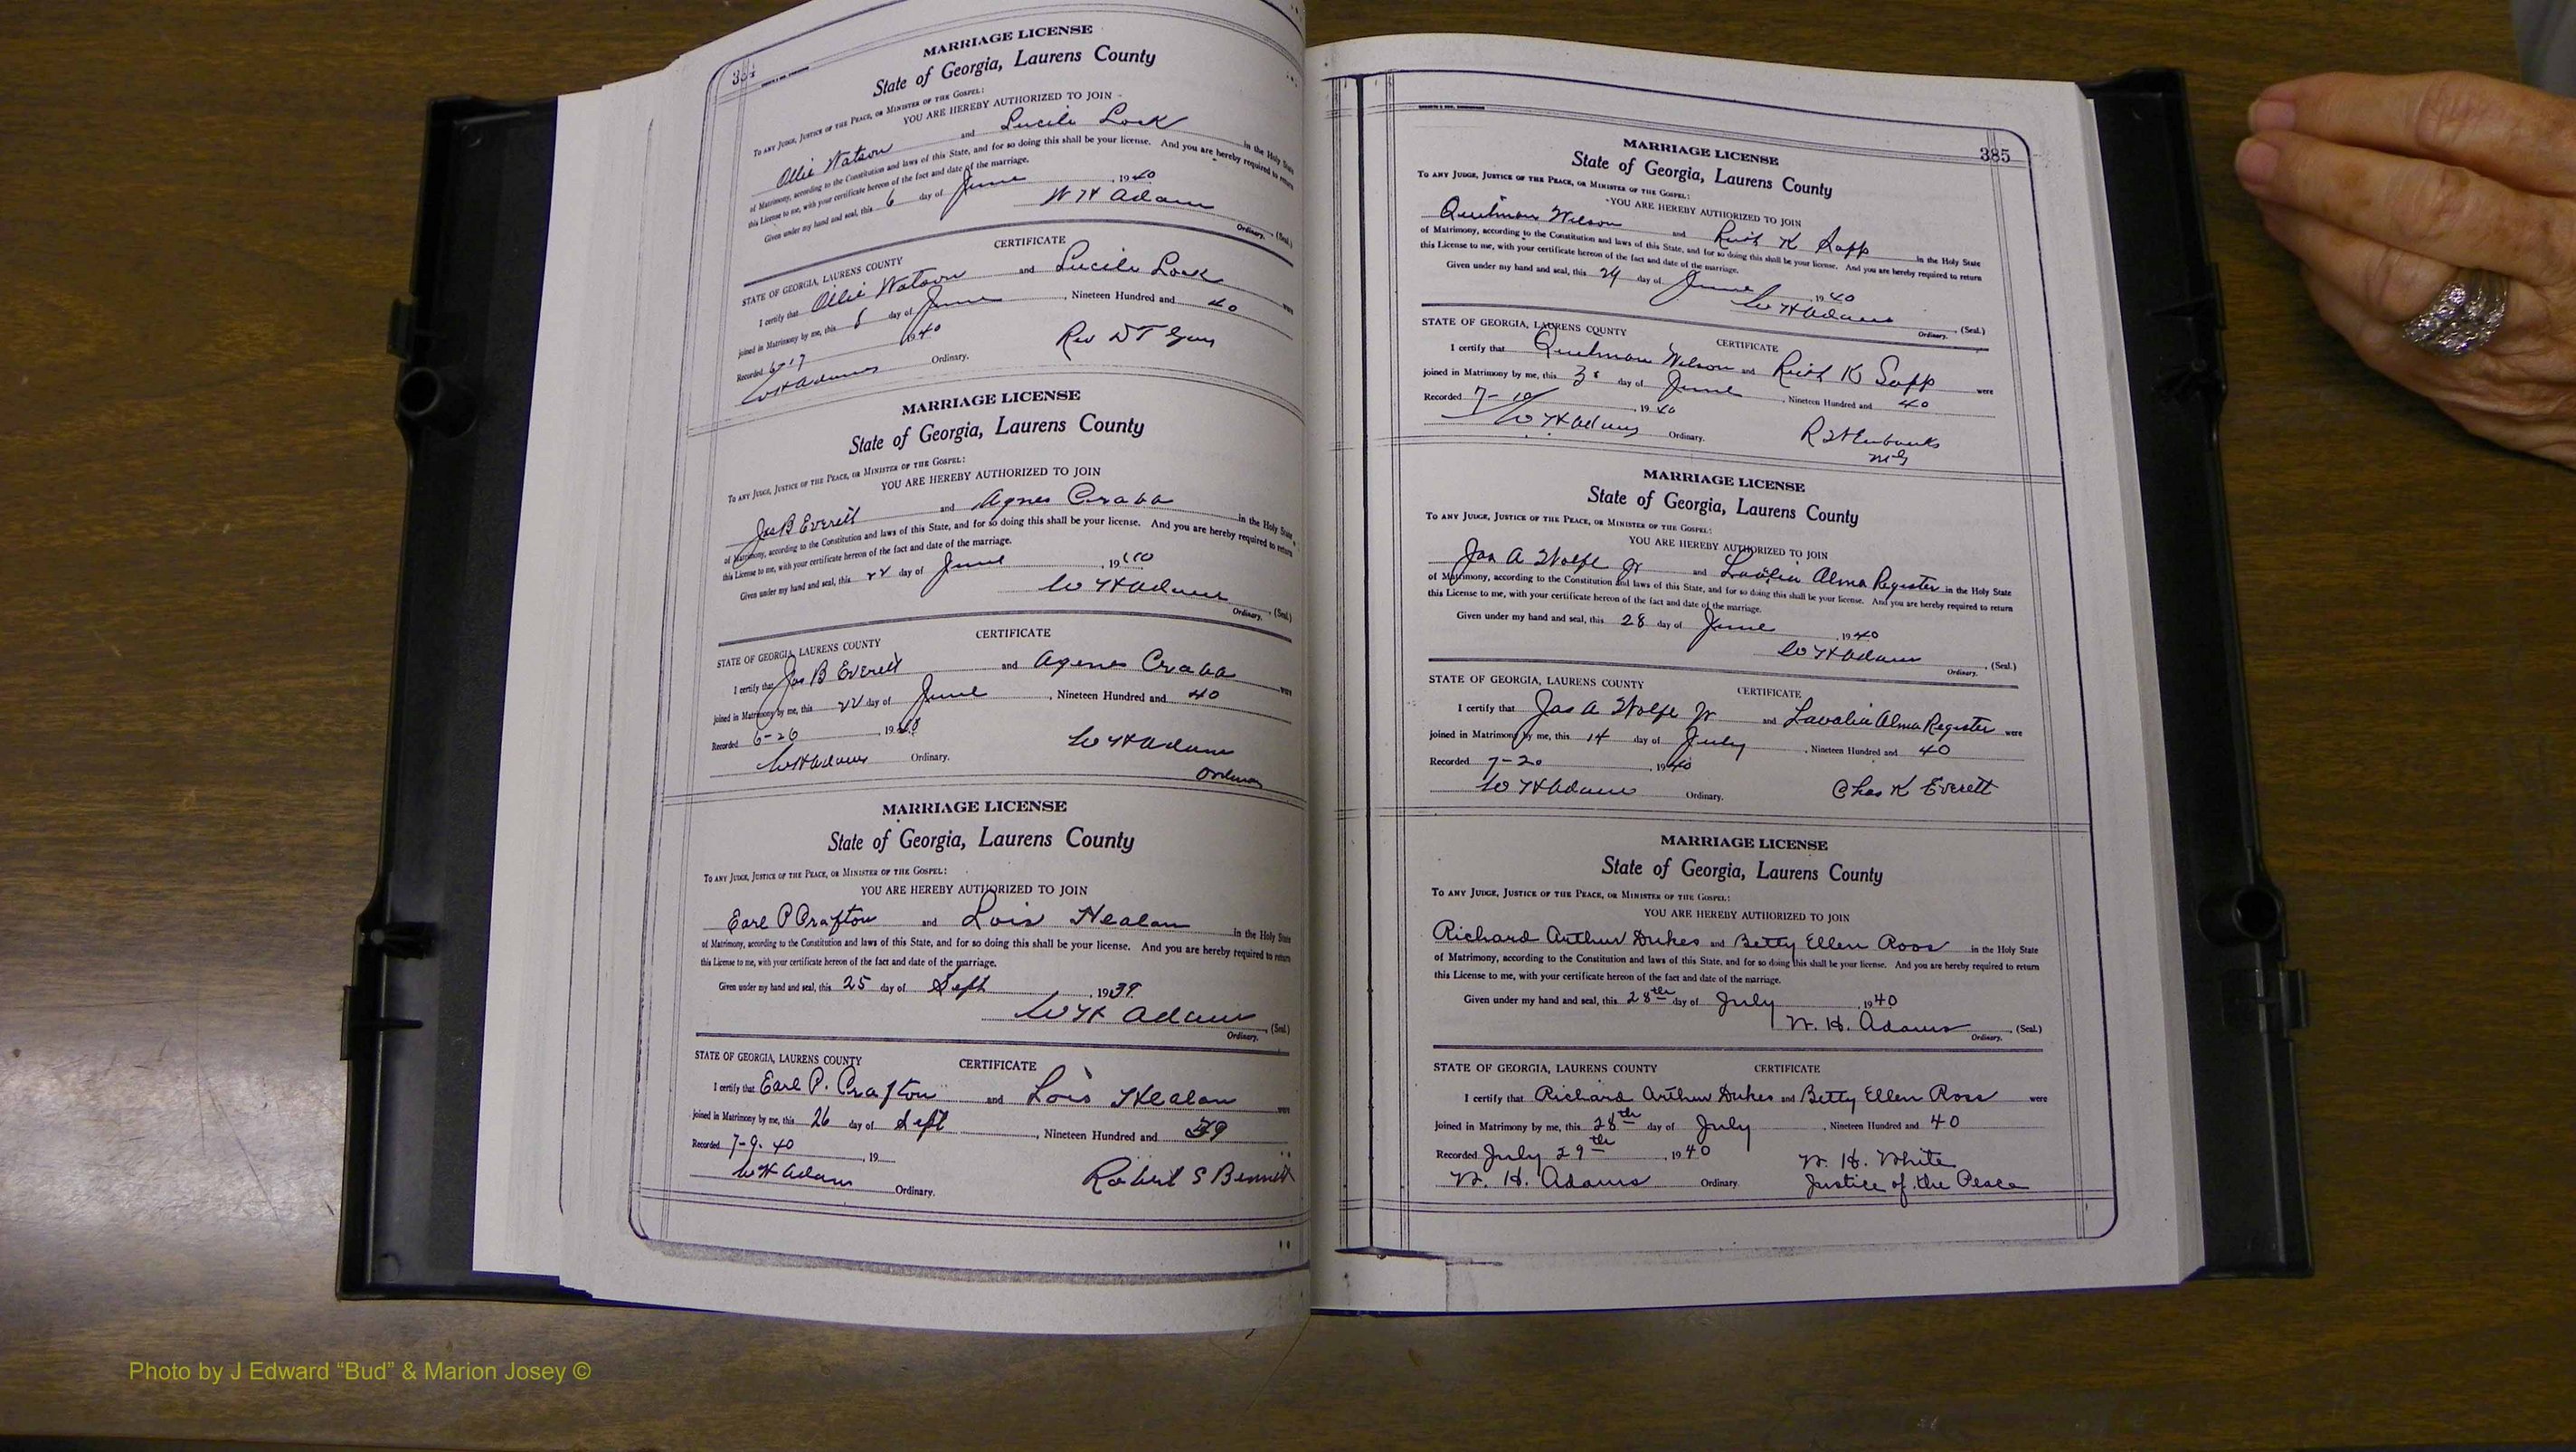 384
MARRIAGE LICENSE
State of Georgia, Laurens County
To any Judge, Justice of the Peace, or Minister of the Gospel:
YOU ARE HEREBY AUTHORIZED TO JOIN
Ollie Watson and Lucile Lock in the Holy State
of Matrimony, according to the Constitution and laws of this State, and for so doing this shall be your license. And you are hereby required to return
this License to me, with your certificate hereon of the fact and date of the marriage.
Given under my hand and seal, this 6 day of June, 1940
W H Adams (Seal.)
Ordinary.
CERTIFICATE
STATE OF GEORGIA, LAURENS COUNTY
I certify that Ollie Watson and Lucile Lock were
joined in Matrimony by me, this day of June, Nineteen Hundred and 40
Recorded 6-17 1940
W H Adams Ordinary. Rev D T
MARRIAGE LICENSE
State of Georgia, Laurens County
To any Judge, Justice of the Peace, or Minister of the Gospel:
YOU ARE HEREBY AUTHORIZED TO JOIN
Jas B Everett and Agnes Craba in the Holy State
of Matrimony, according to the Constitution and laws of this State, and for so doing this shall be your license. And you are hereby required to return
this License to me, with your certificate hereon of the fact and date of the marriage.
Given under my hand and seal, this 22 day of June, 1940
W H Adams (Seal.)
Ordinary.
CERTIFICATE
STATE OF GEORGIA, LAURENS COUNTY
I certify that Jas B Everett and Agenes Craba were
joined in Matrimony by me, this 22 day of June, Nineteen Hundred and 40
Recorded 6-26, 1940
W H Adams Ordinary. W H Adams
Ordinary
MARRIAGE LICENSE
State of Georgia, Laurens County
To any Judge, Justice of the Peace, or Minister of the Gospel:
YOU ARE HEREBY AUTHORIZED TO JOIN
Earl P Crafton and Lois Healan in the Holy State
of Matrimony, according to the Constitution and laws of this State, and for so doing this shall be your license. And you are hereby required to return
this License to me, with your certificate hereon of the fact and date of the marriage.
Given under my hand and seal, this 25 day of Sept, 1939
W H Adams, (Seal.)
Ordinary.
STATE OF GEORGIA, LAURENS COUNTY CERTIFICATE
I certify that Earl P. Crafton and Lois Healan were
joined in Matrimony by me, this 26 day of Sept, Nineteen Hundred and 39
Recorded 7-9-40, 19
W H Adams Ordinary. Robert S Bennett
385
MARRIAGE LICENSE
State of Georgia, Laurens County
To any Judge, Justice of the Peace, or Minister of the Gospel:
YOU ARE HEREBY AUTHORIZED TO JOIN
Quitman Wilson and Ruth K Sapp in the Holy State
of Matrimony, according to the Constitution and laws of this State, and for so doing this shall be your license. And you are hereby required to return
this License to me, with your certificate hereon of the fact and date of the marriage.
Given under my hand and seal, this 29 day of June, 1940
W H Adams (Seal.)
Ordinary.
STATE OF GEORGIA, LAURENS COUNTY
CERTIFICATE
I certify that Quitman Wilson and Ruth K Sapp were
joined in Matrimony by me, this 30 day of June, Nineteen Hundred and 40
Recorded 7-10, 1940
W H Adams Ordinary. Eubanks
MG
MARRIAGE LICENSE
State of Georgia, Laurens County
To any Judge, Justice of the Peace, or Minister of the Gospel:
YOU ARE HEREBY AUTHORIZED TO JOIN
Jas A Wolfe Jr and Lavalia Alma Register in the Holy State
of Matrimony, according to the Constitution and laws of this State, and for so doing this shall be your license. And you are hereby required to return
this License to me, with your certificate hereon of the fact and date of the marriage.
Given under my hand and seal, this 28 day of June, 1940
W H Adams, (Seal.)
Ordinary.
STATE OF GEORGIA, LAURENS COUNTY CERTIFICATE
I certify that Jas A Wolfe Jr and Lavalia Alma Register were
joined in Matrimony by me, this 14 day of July, Nineteen Hundred and 40
Recorded 7-20, 1940
W H Adams Ordinary. Chas K Everett
MARRIAGE LICENSE
State of Georgia, Laurens County
To any Judge, Justice of the Peace, or Minister of the Gospel:
YOU ARE HEREBY AUTHORIZED TO JOIN
Richard Arthur Dukes and Betty Ellen Ross in the Holy State
of Matrimony, according to the Constitution and laws of this State, and for so doing this shall be your license. And you are hereby required to return
this License to me, with your certificate hereon of the fact and date of the marriage.
Given under my hand and seal, this 28th day of July, 1940
W. H. Adams, (Seal.)
Ordinary.
STATE OF GEORGIA, LAURENS COUNTY CERTIFICATE
I certify that Richard Arthur Dukes and Betty Ellen Ross were
joined in Matrimony by me, this 28th day of July, Nineteen Hundred and 40
Recorded July 29th, 1940 W. H. White
W. H. Adams Ordinary Justice of the Peace
Photo by J Edward “Bud” & Marion Josey ©